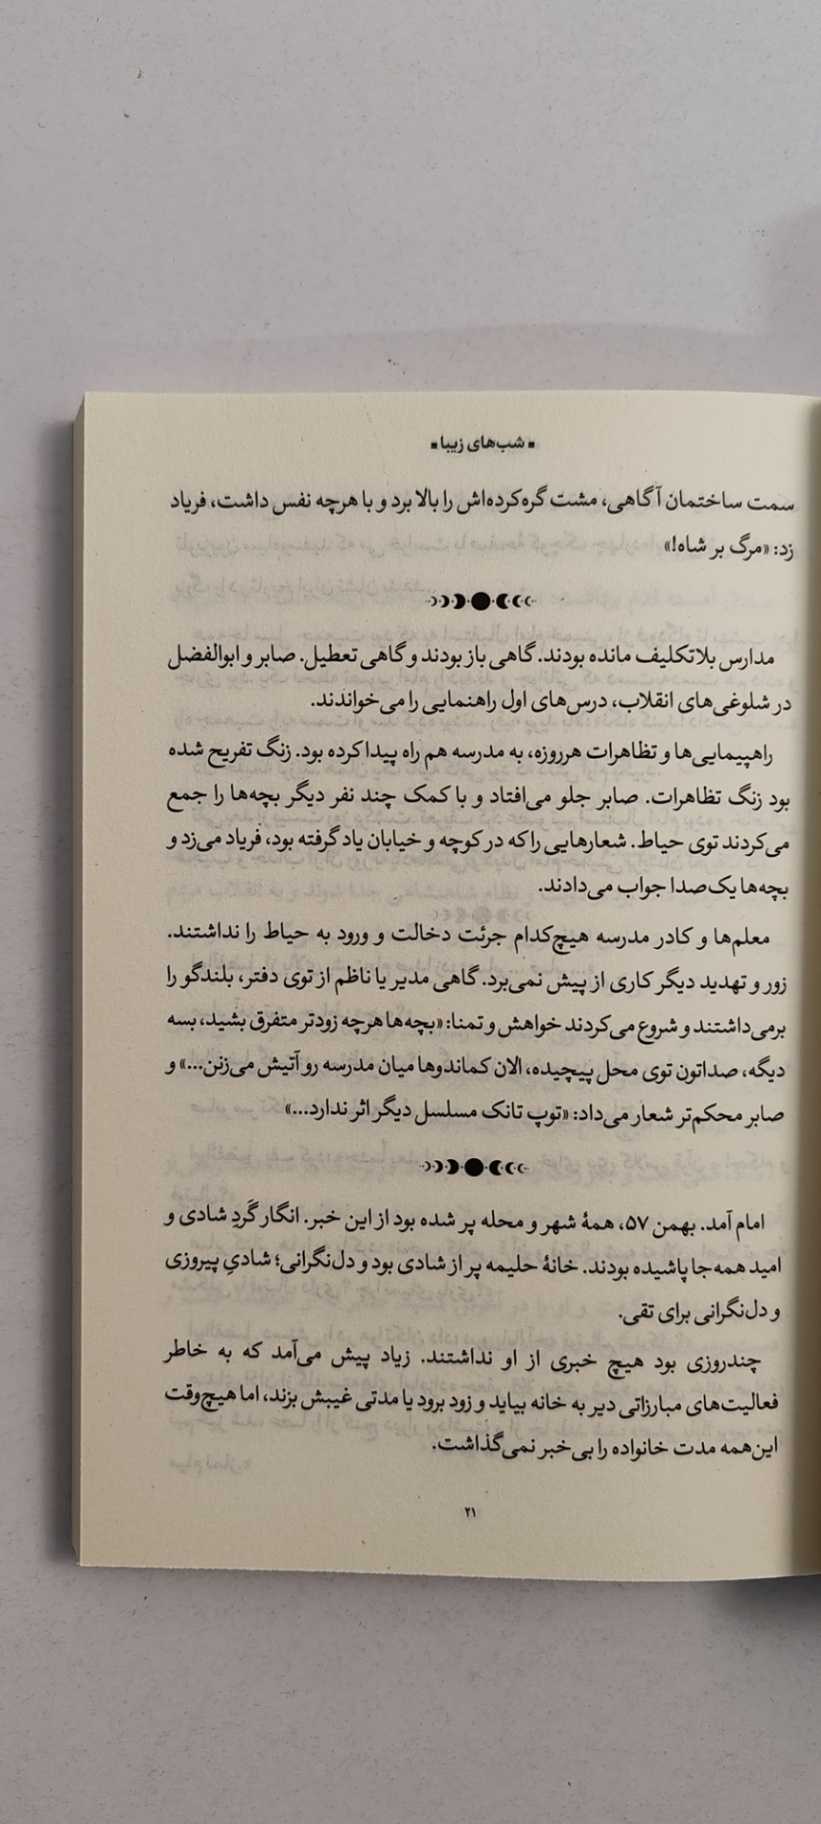 ▪ شب‌های زیبا ▪
سمت ساختمان آگاهی، مشت گره‌کرده‌اش را بالا برد و با هرچه نفس داشت، فریاد
زد: «مرگ بر شاه!»
مدارس بلاتکلیف مانده بودند. گاهی باز بودند و گاهی تعطیل. صابر و ابوالفضل
در شلوغی‌های انقلاب، درس‌های اول راهنمایی را می‌خواندند.
راهپیمایی‌ها و تظاهرات هرروزه، به مدرسه هم راه پیدا کرده بود. زنگ تفریح شده
بود زنگ تظاهرات. صابر جلو می‌افتاد و با کمک چند نفر دیگر بچه‌ها را جمع
می‌کردند توی حیاط. شعارهایی را که در کوچه و خیابان یاد گرفته بود، فریاد می‌زد و
بچه‌ها یک‌صدا جواب می‌دادند.
معلم‌ها و کادر مدرسه هیچ‌کدام جرئت دخالت و ورود به حیاط را نداشتند.
زور و تهدید دیگر کاری از پیش نمی‌برد. گاهی مدیر یا ناظم از توی دفتر، بلندگو را
برمی‌داشتند و شروع می‌کردند خواهش و تمنا: «بچه‌ها هرچه زودتر متفرق بشید، بسه
دیگه، صداتون توی محل پیچیده، الان کماندوها میان مدرسه رو آتیش می‌زنن...» و
صابر محکم‌تر شعار می‌داد: «توپ تانک مسلسل دیگر اثر ندارد...»
امام آمد. بهمن ۵۷، همهٔ شهر و محله پر شده بود از این خبر. انگار گَردِ شادی و
امید همه‌جا پاشیده بودند. خانهٔ حلیمه پر از شادی بود و دل‌نگرانی؛ شادیِ پیروزی
و دل‌نگرانی برای تقی.
چندروزی بود هیچ خبری از او نداشتند. زیاد پیش می‌آمد که به خاطر
فعالیت‌های مبارزاتی دیر به خانه بیاید و زود برود یا مدتی غیبش بزند، اما هیچ‌وقت
این‌همه مدت خانواده را بی‌خبر نمی‌گذاشت.
۲۱